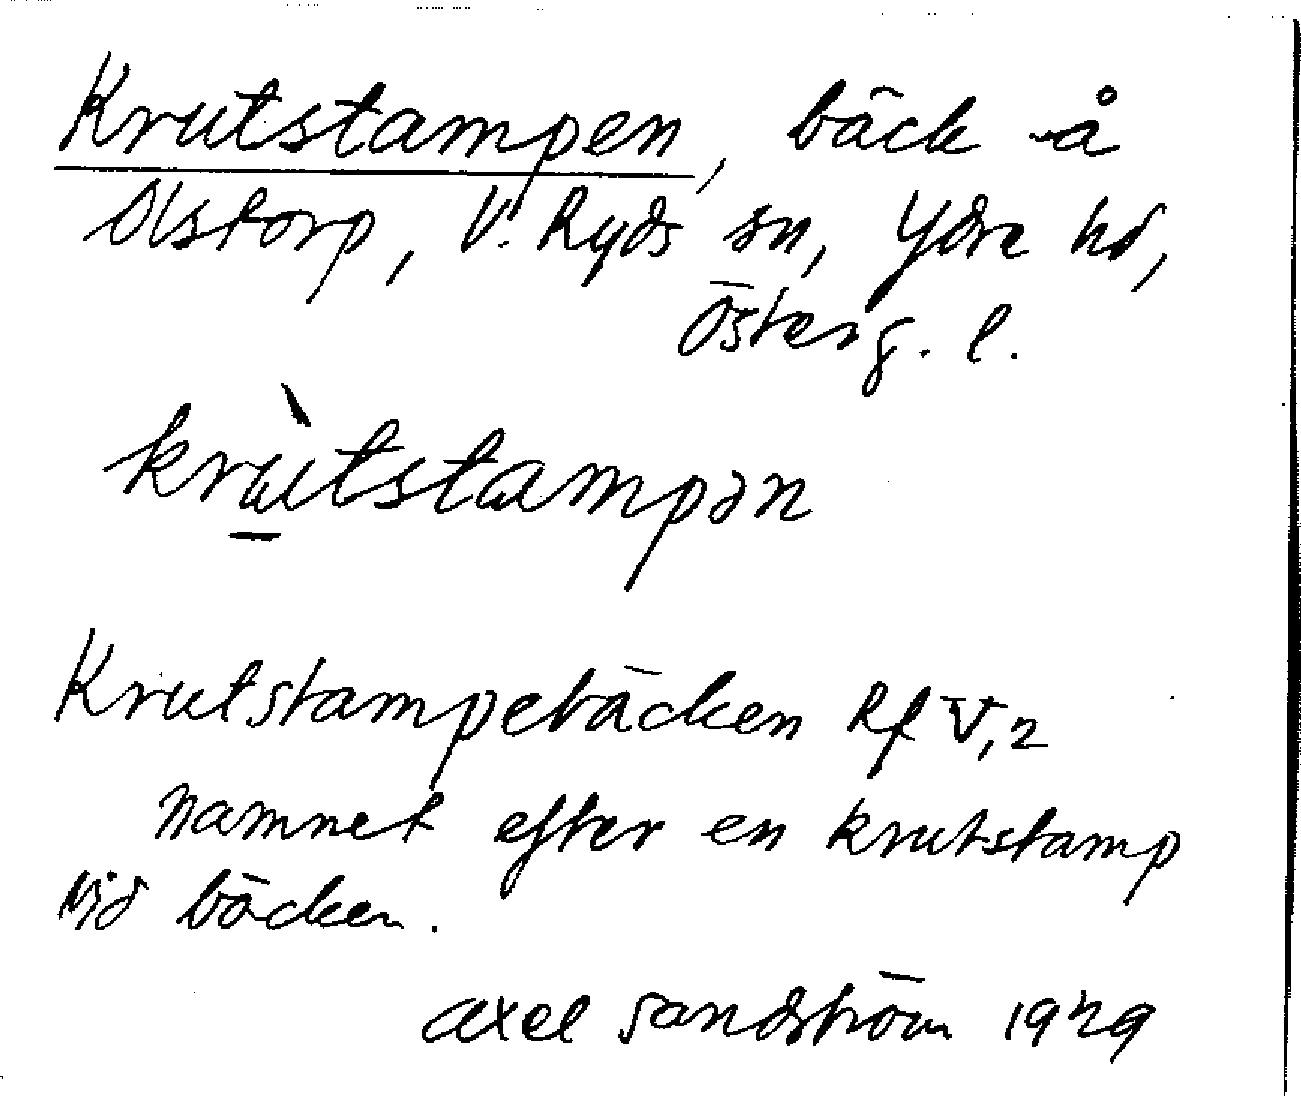 Krutstampen, bäck å
Olstorp, V. Ryds sn, Ydre hd,
Österg. l.
krùtstampən
Krutstampebäcken Rf V, 2
namnet efter en krutstamp
vid bäcken.
Axel Sandström 1929